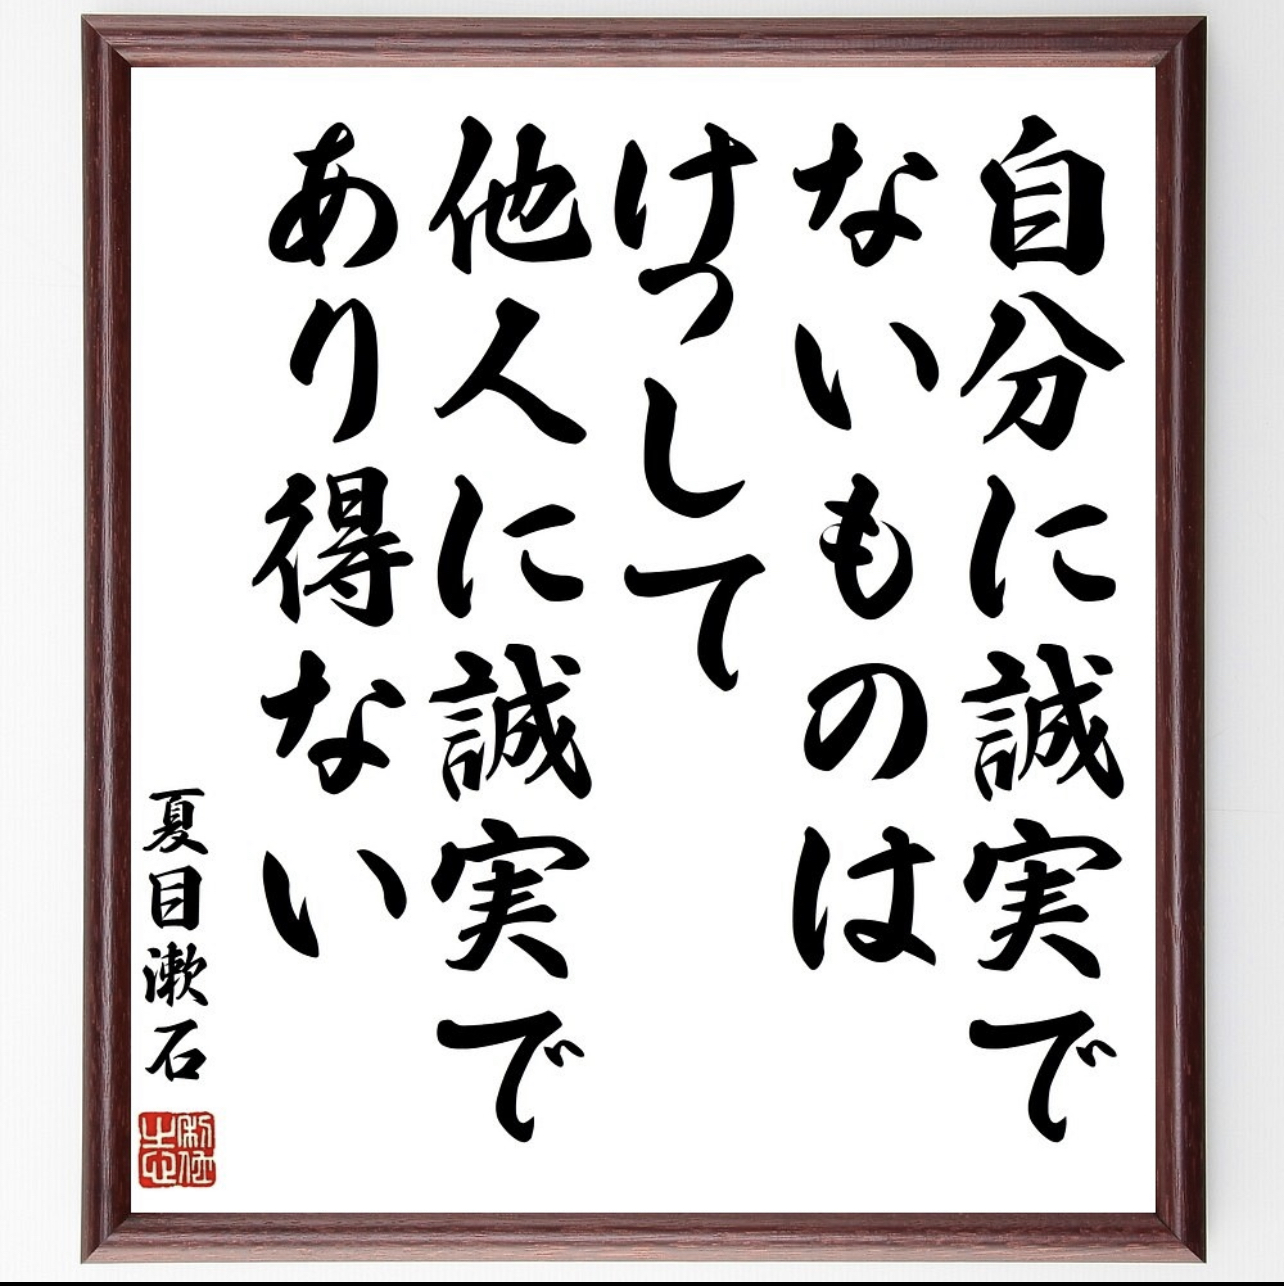 自分に誠実で
ないものは
けっして
他人に誠実で
あり得ない
夏目漱石